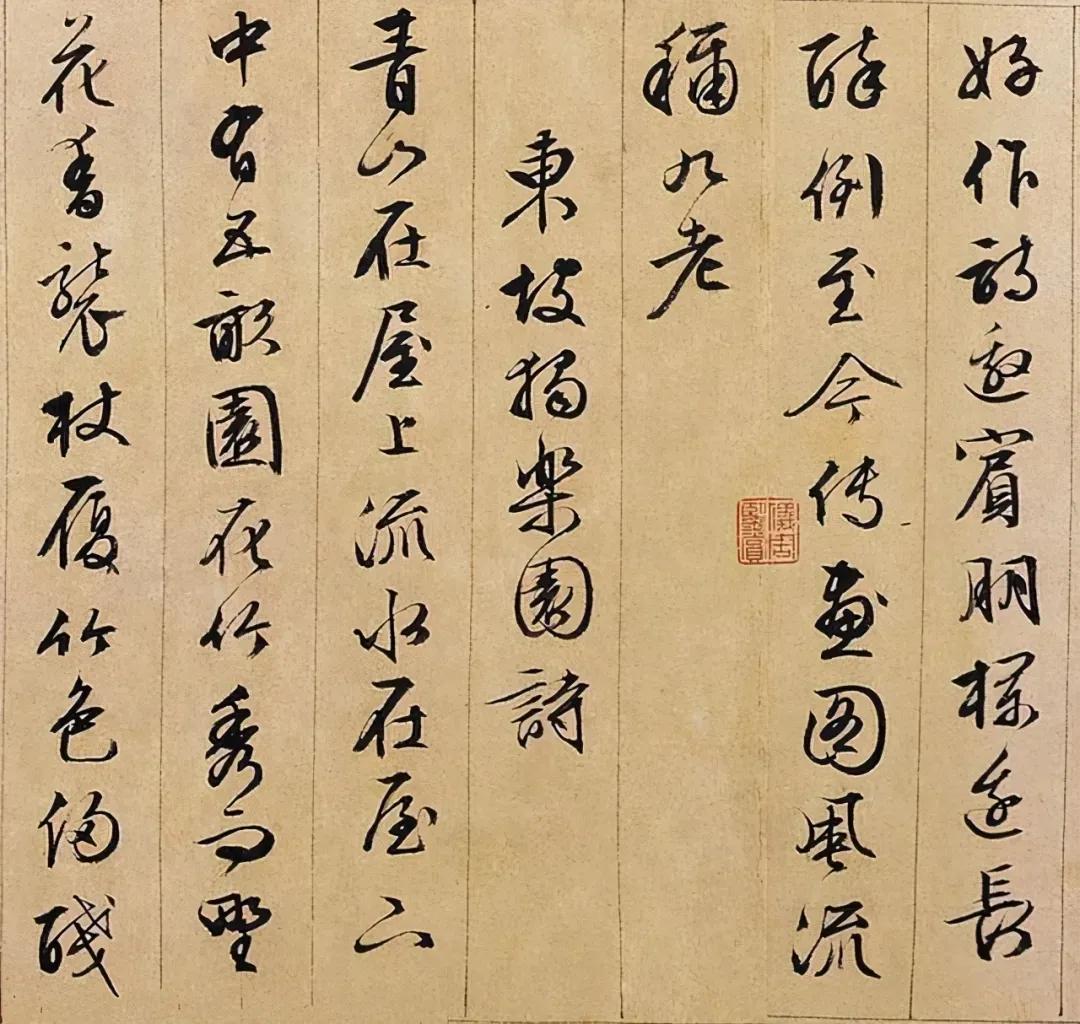 好作詩邀賓朋欄邊長
醉倒至今傳畫圖風流
稱九老
儀周鑑賞
東坡獨樂園詩
青山在屋上流水在屋下
中有五畝園花竹秀而野
花香襲杖屨竹色侵醆